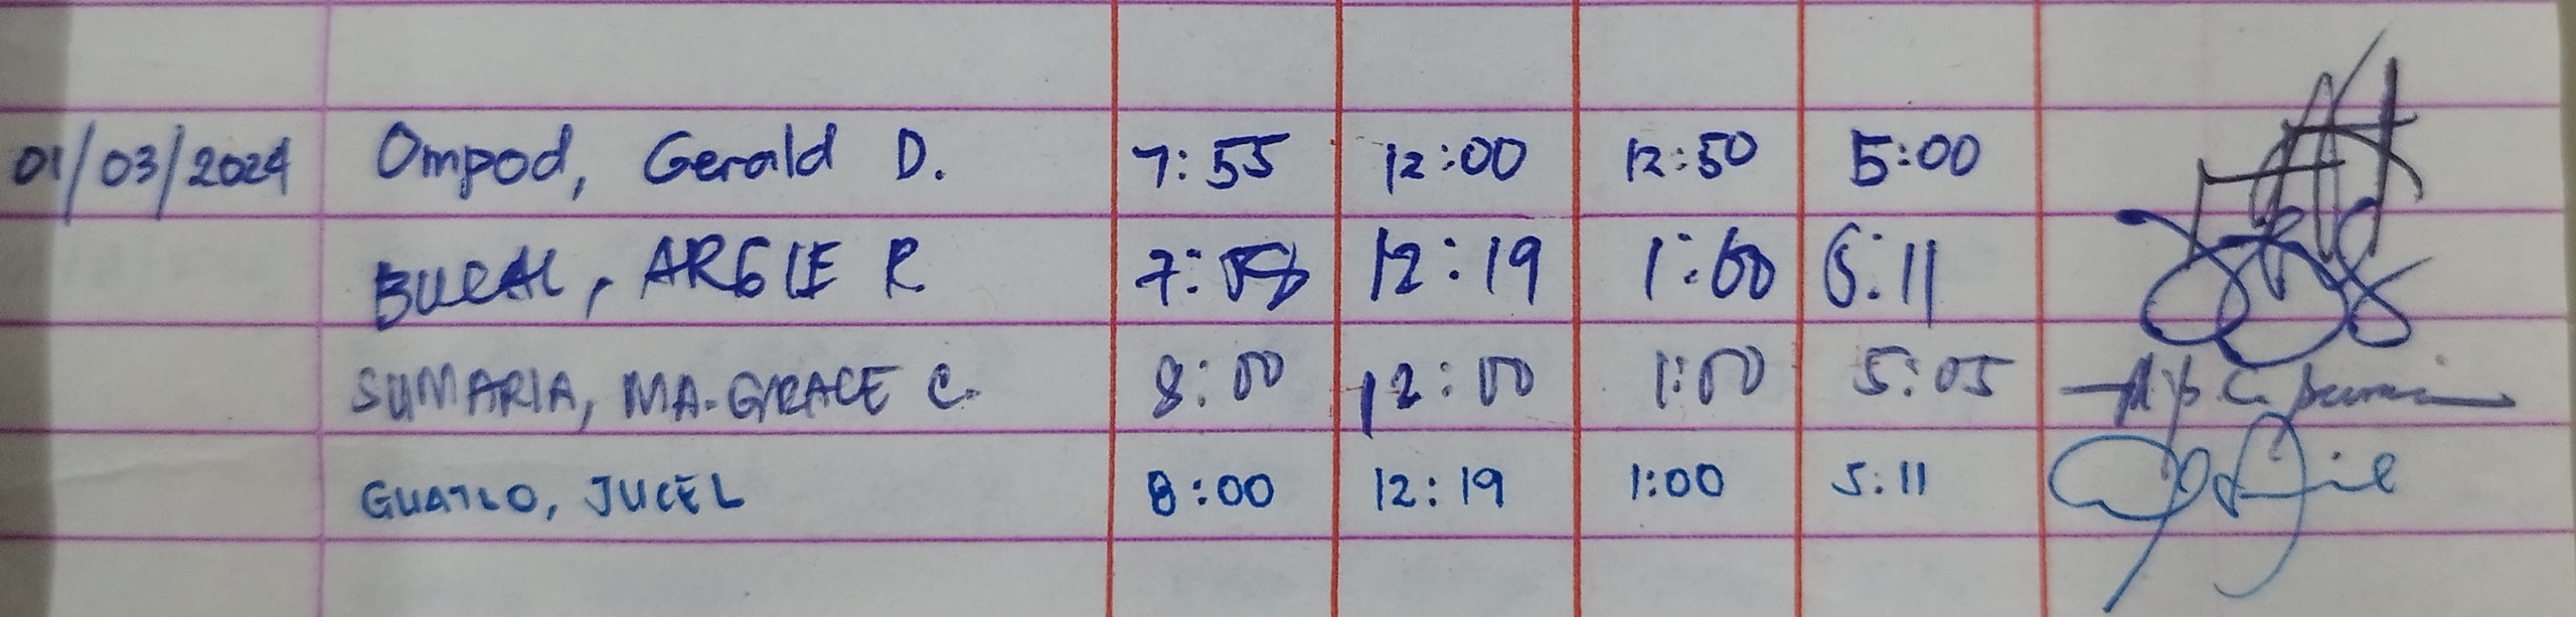 01/03/2024 Ompod, Gerald D. 7:55 12:00 12:50 5:00
BUCAL, ARGIE R. 7:58 12:19 1:00 5:11
SUMARIA, MA. GRACE C. 8:00 12:00 1:00 5:05
GUATLO, JUCEL 8:00 12:19 1:00 5:11